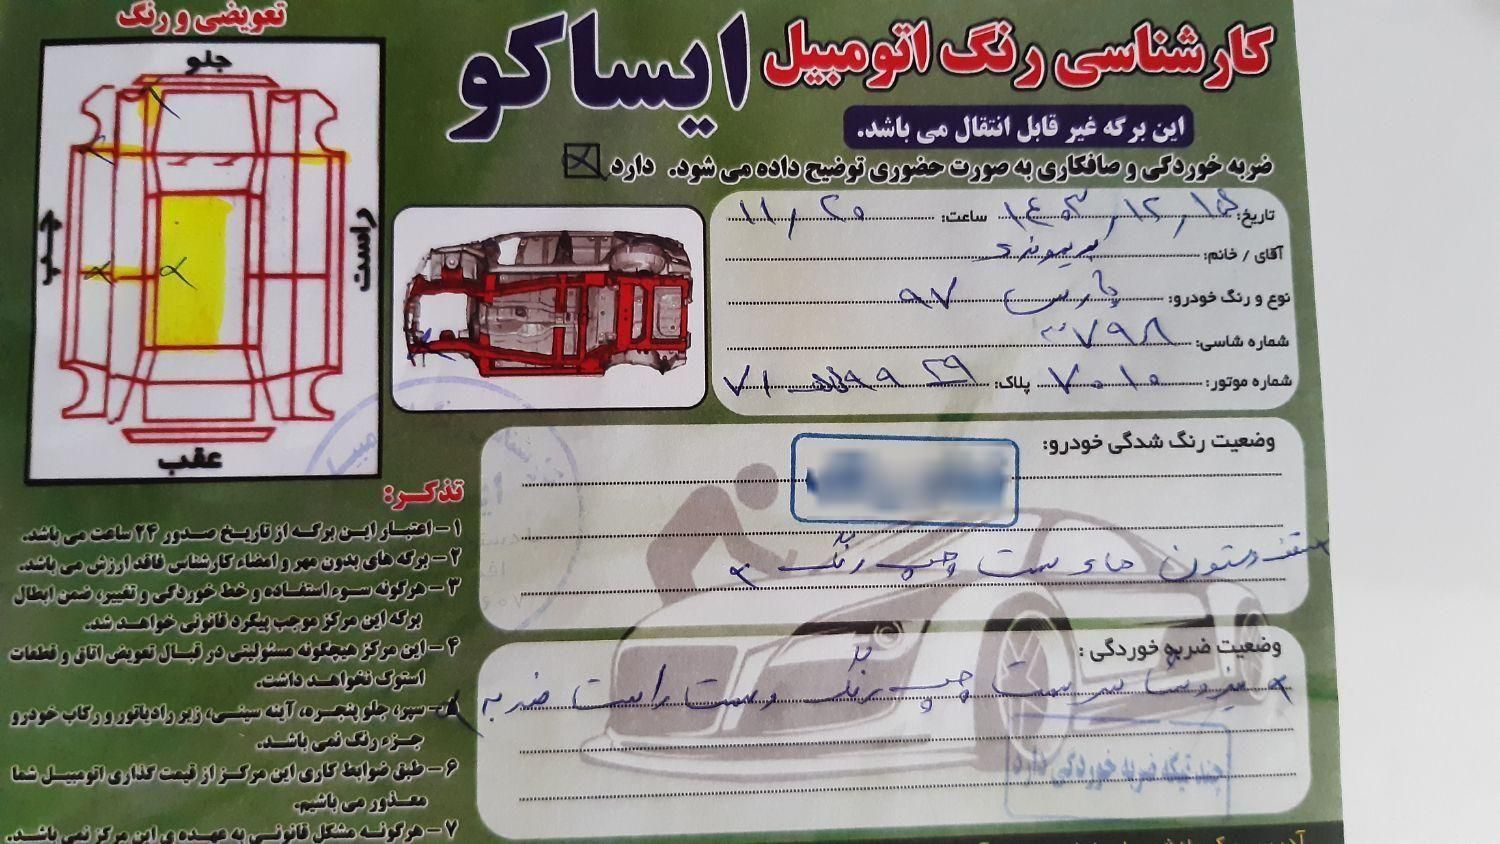 کارشناسی رنگ اتومبیل ایساکو
این برگه غیر قابل انتقال می باشد.
ضربه خوردگی و صافکاری به صورت حضوری توضیح داده می شود. دارد
تاریخ: ۱۴۰۳/۱۲/۱۵ ساعت: ۱۱/۲۰
آقای / خانم:
نوع و رنگ خودرو: پارس ۹۷
شماره شاسی: ۳۷۹۸
شماره موتور: ۷۰۱۰ پلاک: ۲۹ ۷۱
وضعیت رنگ شدگی خودرو:
سقف و ستون های سمت چپ رنگ
وضعیت ضربه خوردگی :
سر سمت چپ رنگ و سمت راست ضربه
چند تیکه ضربه خوردگی دارد
تعویضی و رنگ
جلو
چپ
راست
عقب
تذکر:
۱- اعتبار این برگه از تاریخ صدور ۲۴ ساعت می باشد.
۲- برگه های بدون مهر و امضاء کارشناسی فاقد ارزش می باشد.
۳- هرگونه سوء استفاده و خط خوردگی و تغییر، ضمن ابطال
برگه این مرکز موجب پیگرد قانونی خواهد شد.
۴- این مرکز هیچگونه مسئولیتی در قبال تعویض اتاق و قطعات
استوک نخواهد داشت.
۵- سپر، جلو پنجره، آینه سینی، زیر رادیاتور و رکاب خودرو
جزء رنگ نمی باشد.
۶- طبق ضوابط کاری این مرکز از قیمت گذاری اتومبیل شما
معذور می باشیم.
۷- هرگونه مشکل قانونی به عهده ی این مرکز نمی باشد.